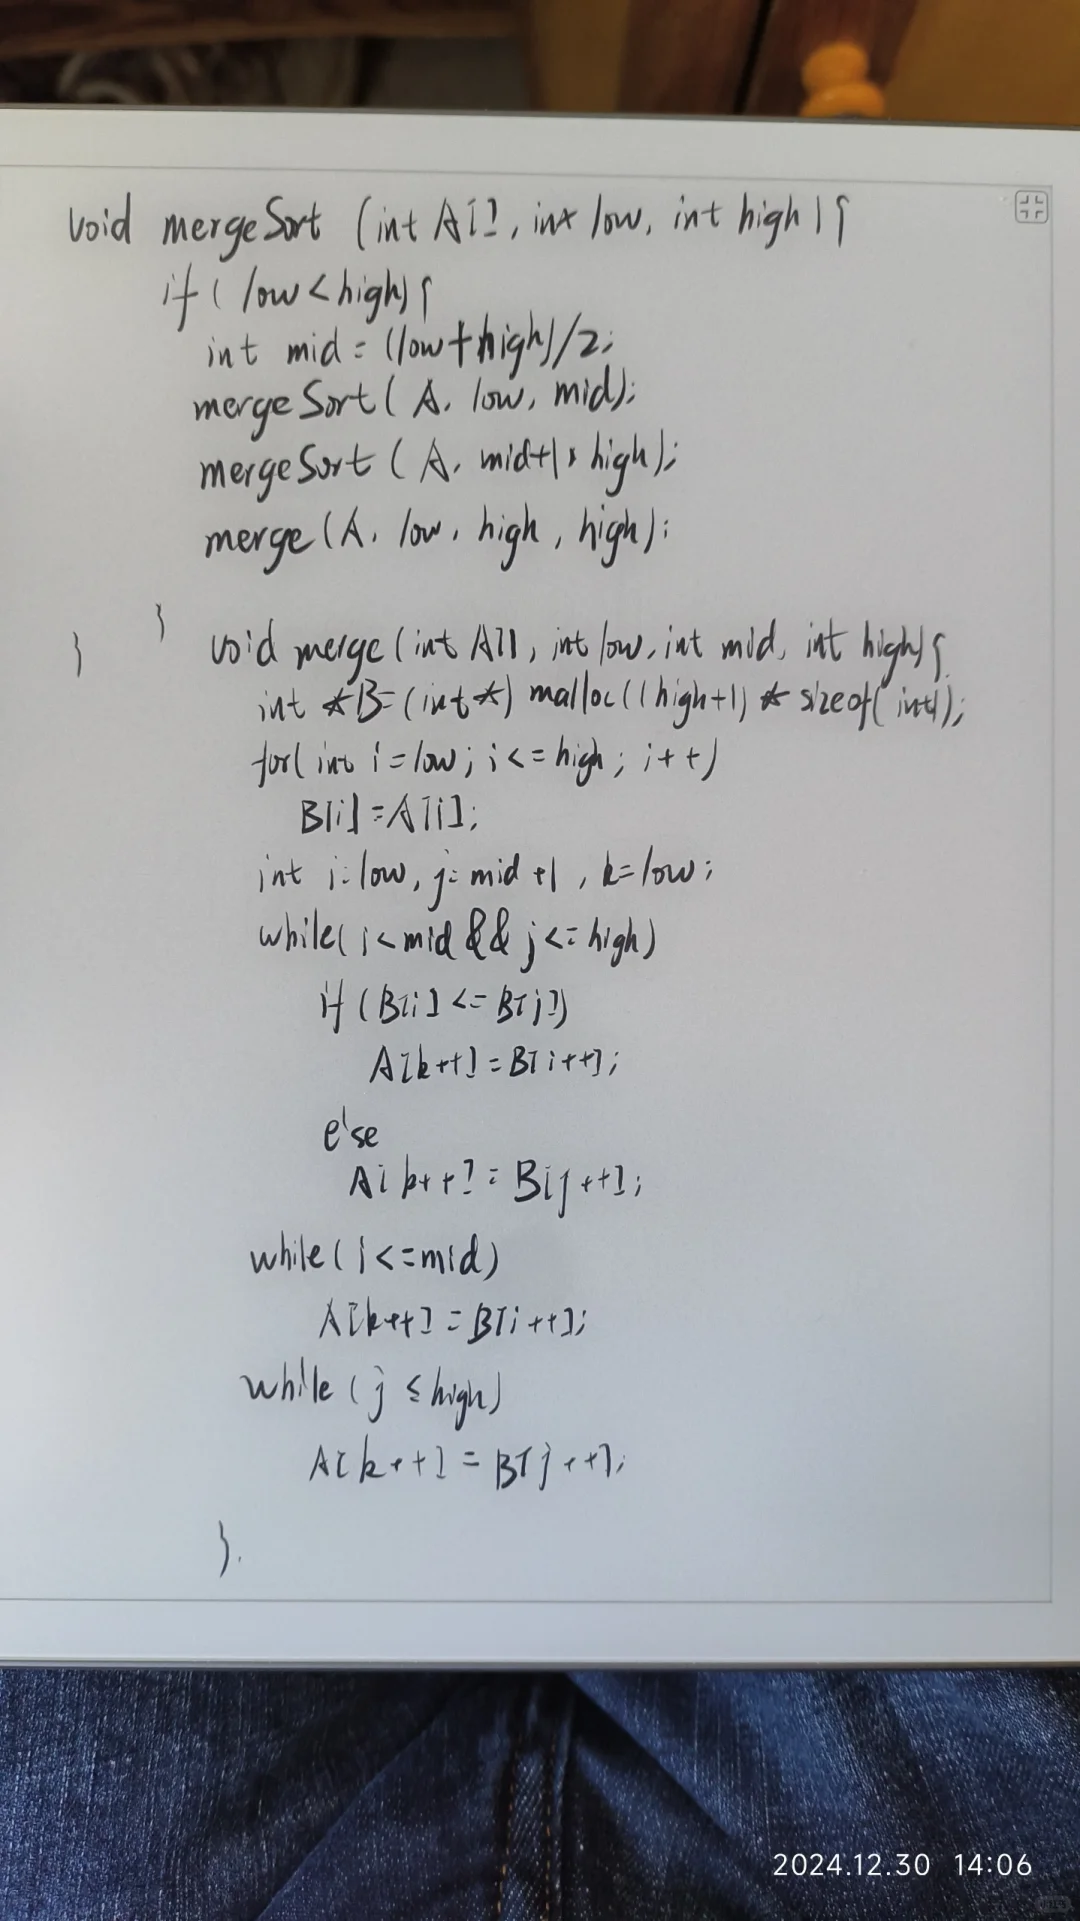 void mergeSort (int A[], int low, int high){
if( low<high){
int mid = (low+high)/2;
mergeSort( A, low, mid);
mergeSort ( A, mid+1, high);
merge(A, low, high, high);
}
}
void merge(int A[], int low, int mid, int high){
int *B=(int*) malloc((high+1) * sizeof(int));
for( int i=low; i<=high; i++)
B[i]=A[i];
int i=low, j=mid+1, k=low;
while( i<mid && j<=high)
if (B[i] <= B[j])
A[k++] = B[i++];
else
A[k++] = B[j++];
while( i<=mid)
A[k++] = B[i++];
while (j ≤ high)
A[k++] = B[j++];
}.
2024.12.30 14:06